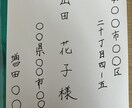 〇市〇〇区
二十丁目四ー五
山田 花子 様
〇〇県〇〇市〇〇
増田 〇〇